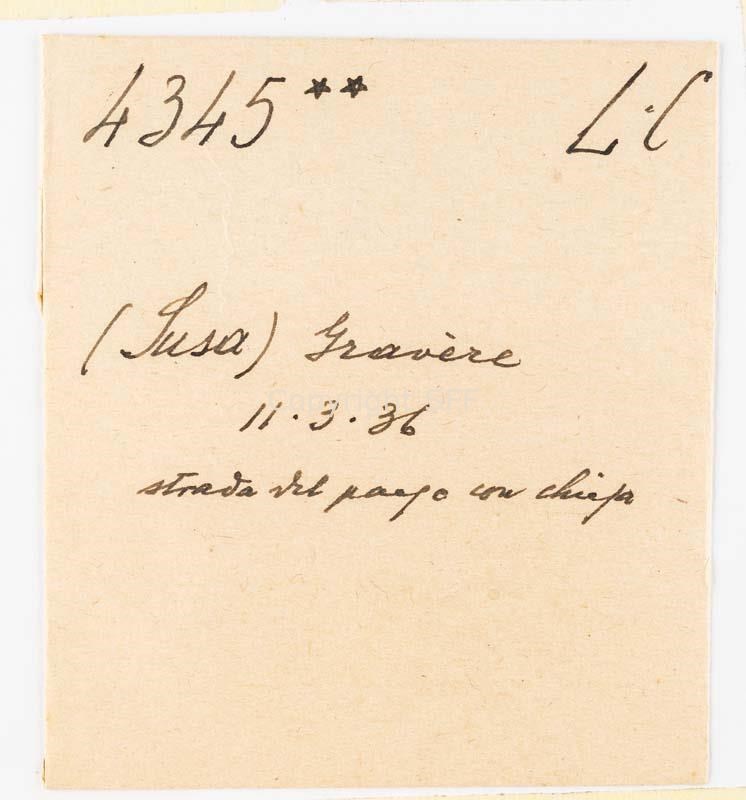 4345** L.C
(Susa) Gravère
11.3.36
strada del paese con chiesa